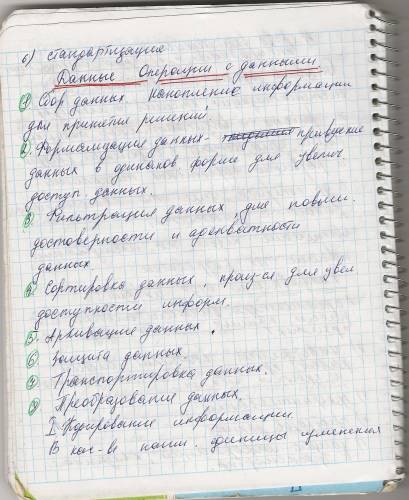 6) стандартизация
Данные Операции с данными.
1. Сбор данных накопление информации
для принятия решений
2. Формализация данных - приведение
данных в одинаков форме для увелич.
доступ. данных.
3. Фильтрация данных, для повыш.
достоверности и адекватности
данных
4. Сортировка данных, произ-ся для увел
доступности информ.
5. Архивация данных.
6. Защита данных.
7. Транспортировка данных.
8. Преобразование данных.
I Кодирование информации.
В кач-ве наим. единицы измерения